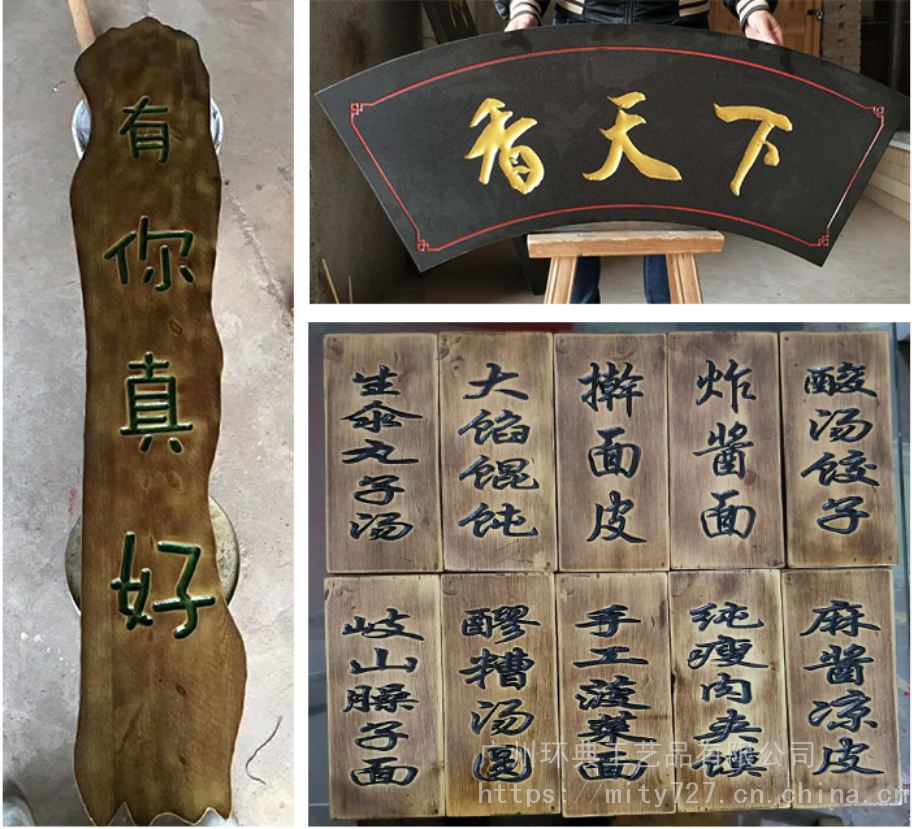 有你真好
香天下
生汆丸子汤
大馅馄饨
擀面皮
炸酱面
酸汤饺子
岐山臊子面
醪糟汤圆
手工菠菜面
纯瘦肉夹馍
麻酱凉皮
广州环典工艺品有限公司
https://mity727.cn.china.cn